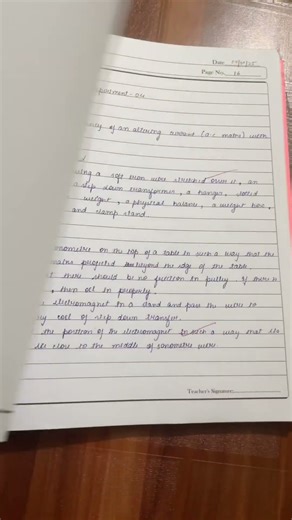 Date
Page No. 16
periment-04
ncy of an altering current (a.c mains) with
d
ing a soft iron wire stretched over it, an
step down transformer, a hanger, slotted
weight, a physical balance, a weight box,
and clamp stand.
onometre on the top of a table in such a way that the
mains projected beyond the edge of the table
t there should be no friction in pulley. If there is
, then oil in properly.
electromagnet in a stand and pass the wire to
y coil of step down transfer.
the position of the electromagnet in such a way that its
lie close to the middle of sonometre wire
Teacher's Signature: